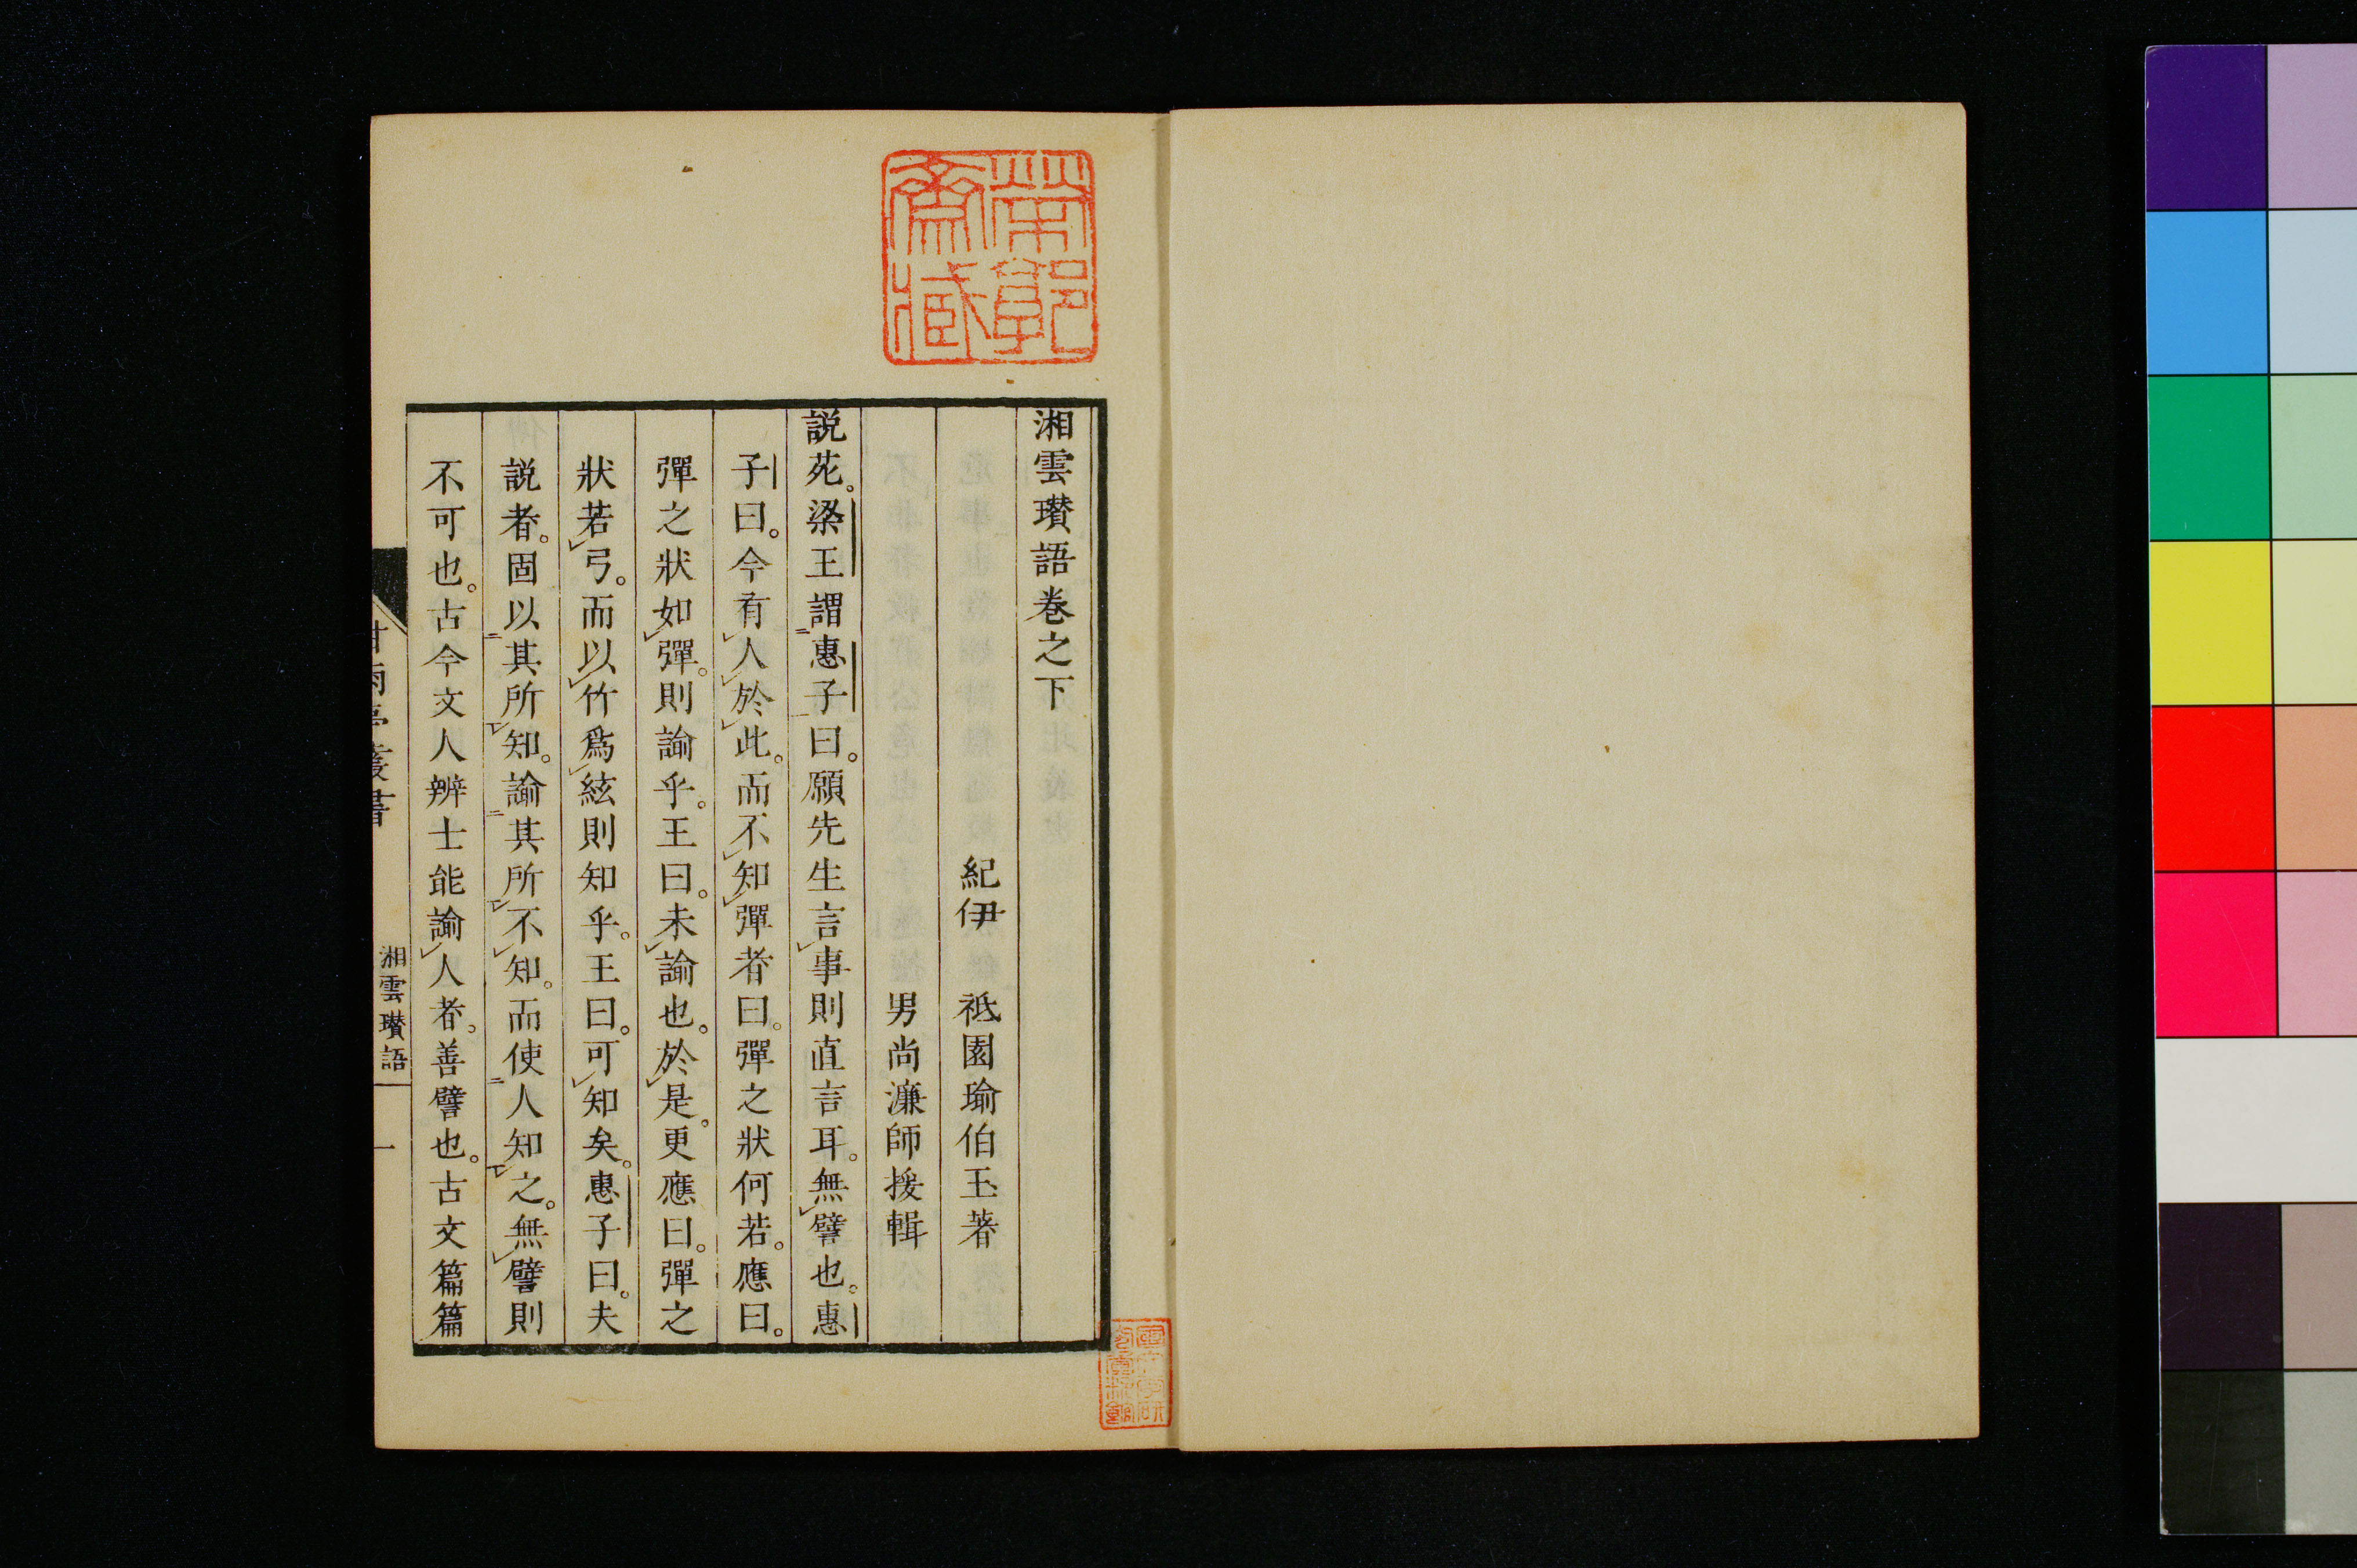 湘雲瓚語卷之下
紀伊　祗園瑜伯玉著
男尚濂師援輯
説苑。梁王謂惠子曰。願先生言事則直言耳。無譬也。惠
子曰。今有人於此。而不知彈者曰。彈之狀何若。應曰。
彈之狀如彈。則諭乎。王曰。未諭也。於是。更應曰。彈之
狀若弓。而以竹爲絃則知乎。王曰。可知矣。惠子曰。夫
説者。固以其所知。諭其所不知。而使人知之。無譬則
不可也。古今文人辨士能諭人者。善譬也。古文篇篇
甘雨亭叢書
湘雲瓚語
一
帶郭
齋藏